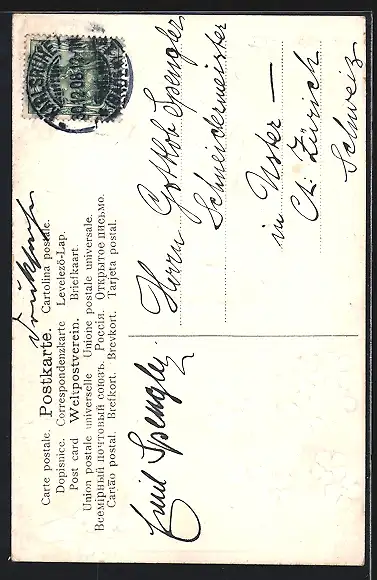 Drucksache
Carte postale. Postkarte. Cartolina postale.
Dopisnice. Correspondenzkarte Levelező-Lap.
Post card Weltpostverein. Briefkaart.
Union postale universelle Unione postale universale.
Всемірный почтовый союзъ. Россія. Открытое письмо.
Cartão postal. Brefkort. Brevkort. Tarjeta postal.
Emil Spengler
KARLSRUHE
30.12.08
Herrn Gottlob Spengler
Schneidermeister
in Uster —
Ct. Zürich
Schweiz